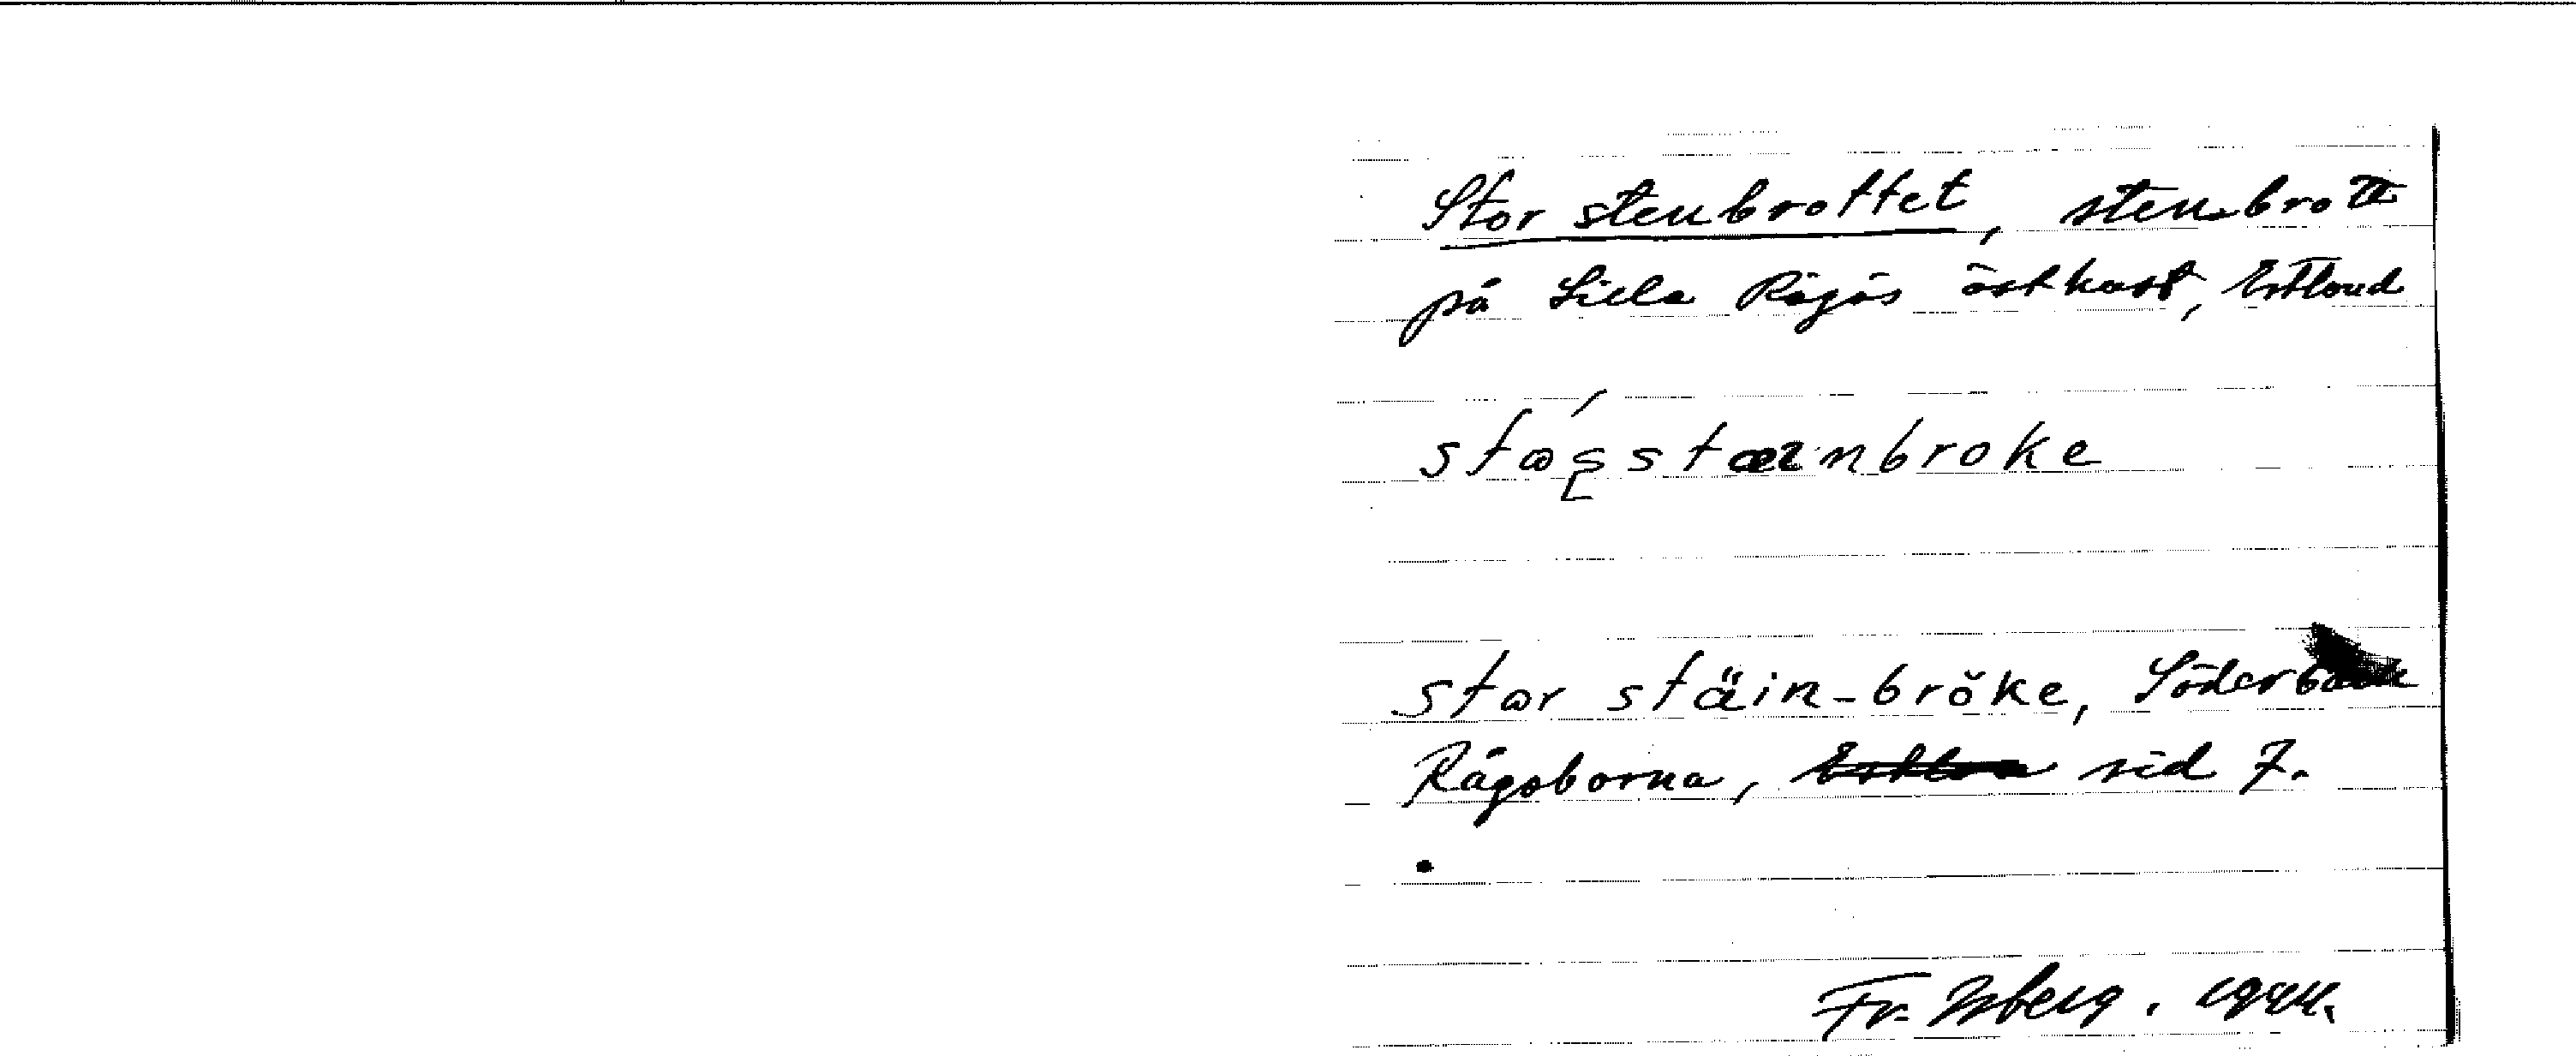 Stor stenbrottet, stenbrott
på Lilla Rågös östkust, Estland
stɷ́ʂstæɪnbroke
stɷr stäin-brŏke, Söderbäck
Rågöborna, sid 7.
Fr. Isberg. 1944.